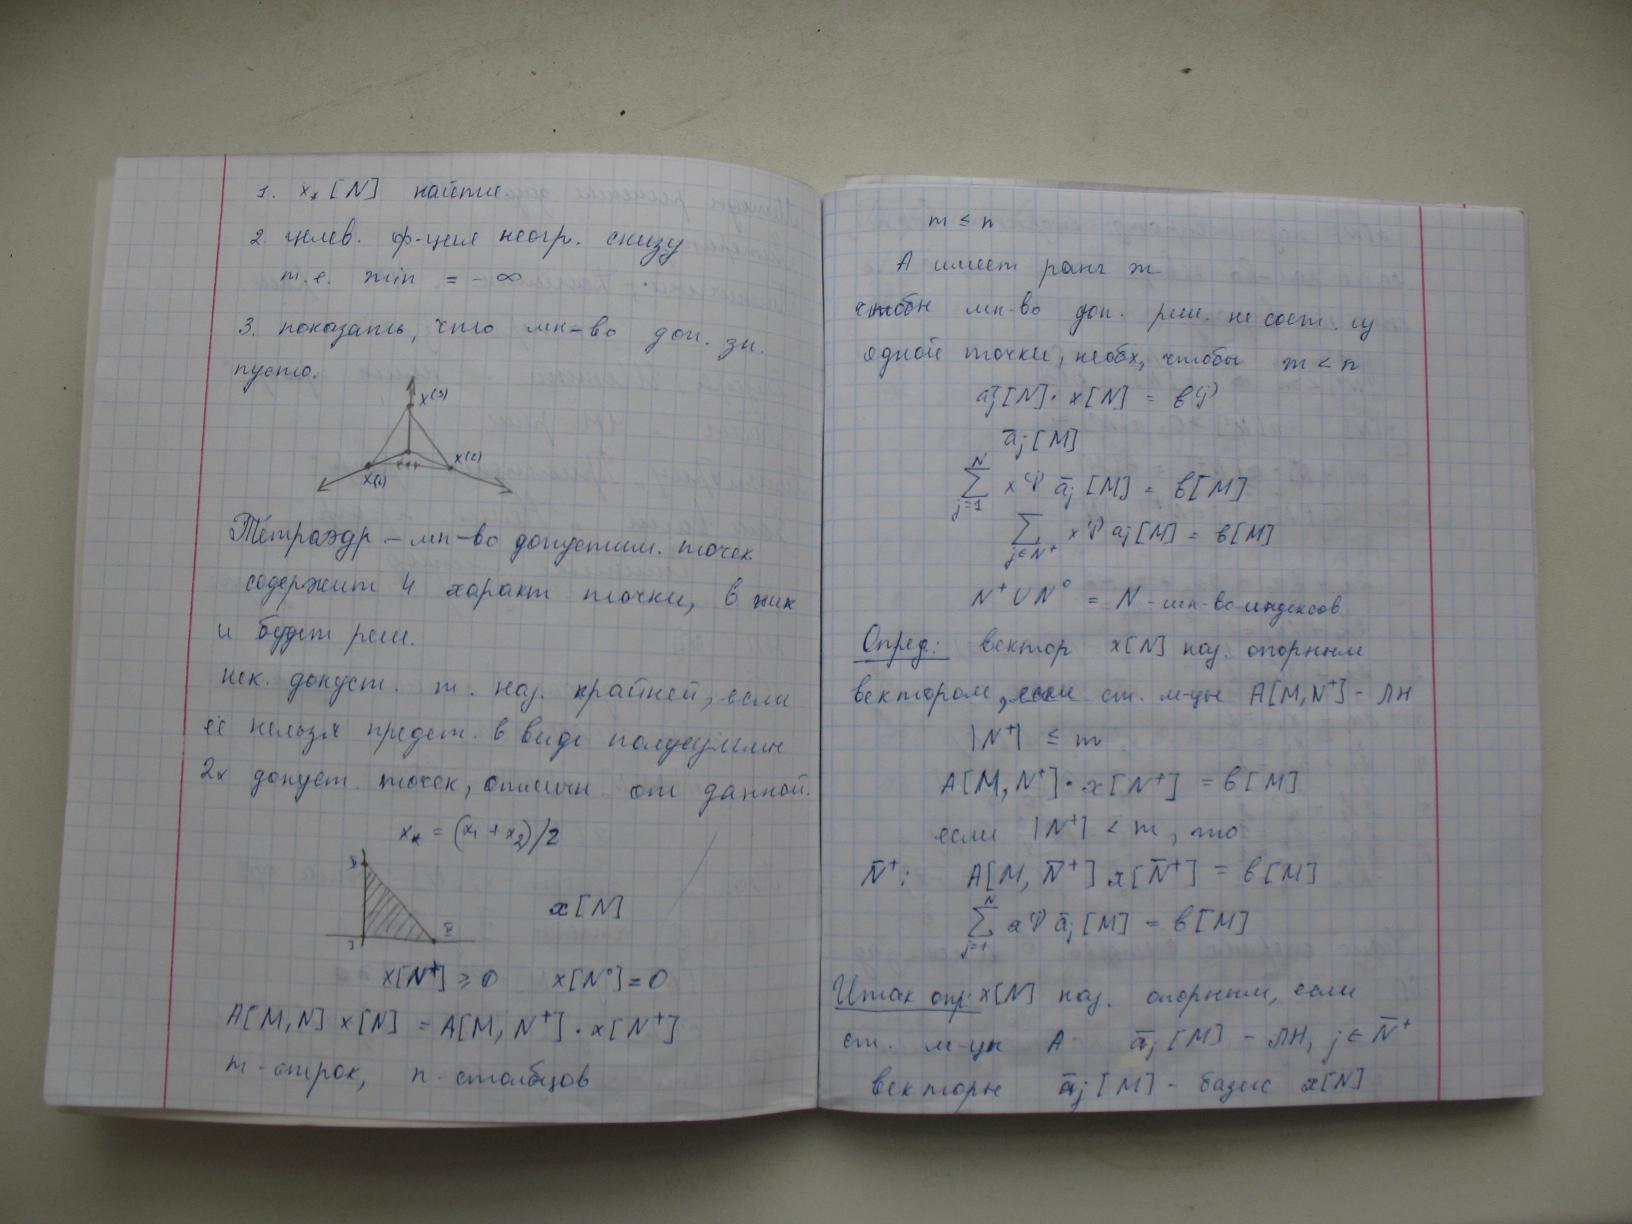 1. x* [N] найти
2. целев. ф-ция неогр. снизу
т.е. min = - ∞
3. показать, что мн-во доп. зн.
пусто.
x(3)
x(2)
x(1)
Тетраэдр - мн-во допустим. точек
содержит 4 характ точки, в них
и будет реш.
нек. допуст. т. наз. крайней, если
её нельзя предст. в виде полусуммы
2х допуст. точек, отличн от данной.
x* = (x₁ + x₂)/2
x[N]
x[N⁺] ≥ 0 x[N⁰] = 0
A[M,N] x[N] = A[M, N⁺] · x[N⁺]
m - строк, n - столбцов
m ≤ n
A имеет ранг m
чтобы мн-во доп. реш. не сост. из
одной точки, необх, чтобы m < n
aj[N] · x[N] = b(j)
āj [M]
N ∑ j=1 x(j) āj [M] = b[M]
∑ j∈N⁺ x(j) aj[M] = b[M]
N⁺ ∪ N⁰ = N - мн-во индексов
Опред: вектор x[N] наз. опорным
вектором, если ст. м-цы A[M,N⁺] - ЛН
|N⁺| ≤ m
A[M,N⁺] · x[N⁺] = b[M]
если |N⁺| < m, то
N̄⁺: A[M, N̄⁺] x[N̄⁺] = b[M]
N ∑ j=1 x(j) āj [M] = b[M]
Итак опр: x[N] наз. опорным, если
ст. м-цы A āj [M] - ЛН, j ∈ N̄⁺
векторы āj [M] - базис x[N]